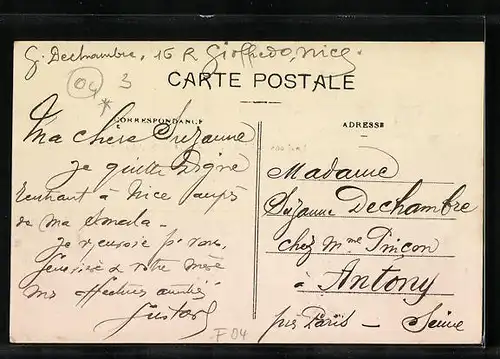 G. Dechambre, 16 R Gioffredo, Nice.
04 3
CARTE POSTALE
CORRESPONDANCE
Ma chère Suzanne
je quitte Digne
rentrant à Nice auprès
de ma smala -
Je renvoie pr vous,
Geneviève & votre mère
mes affectueuses amitiés
Gustave
F 04
ADRESSE
Madame
Suzanne Dechambre
chez Mme Pinçon
à Antony
près Paris - Seine